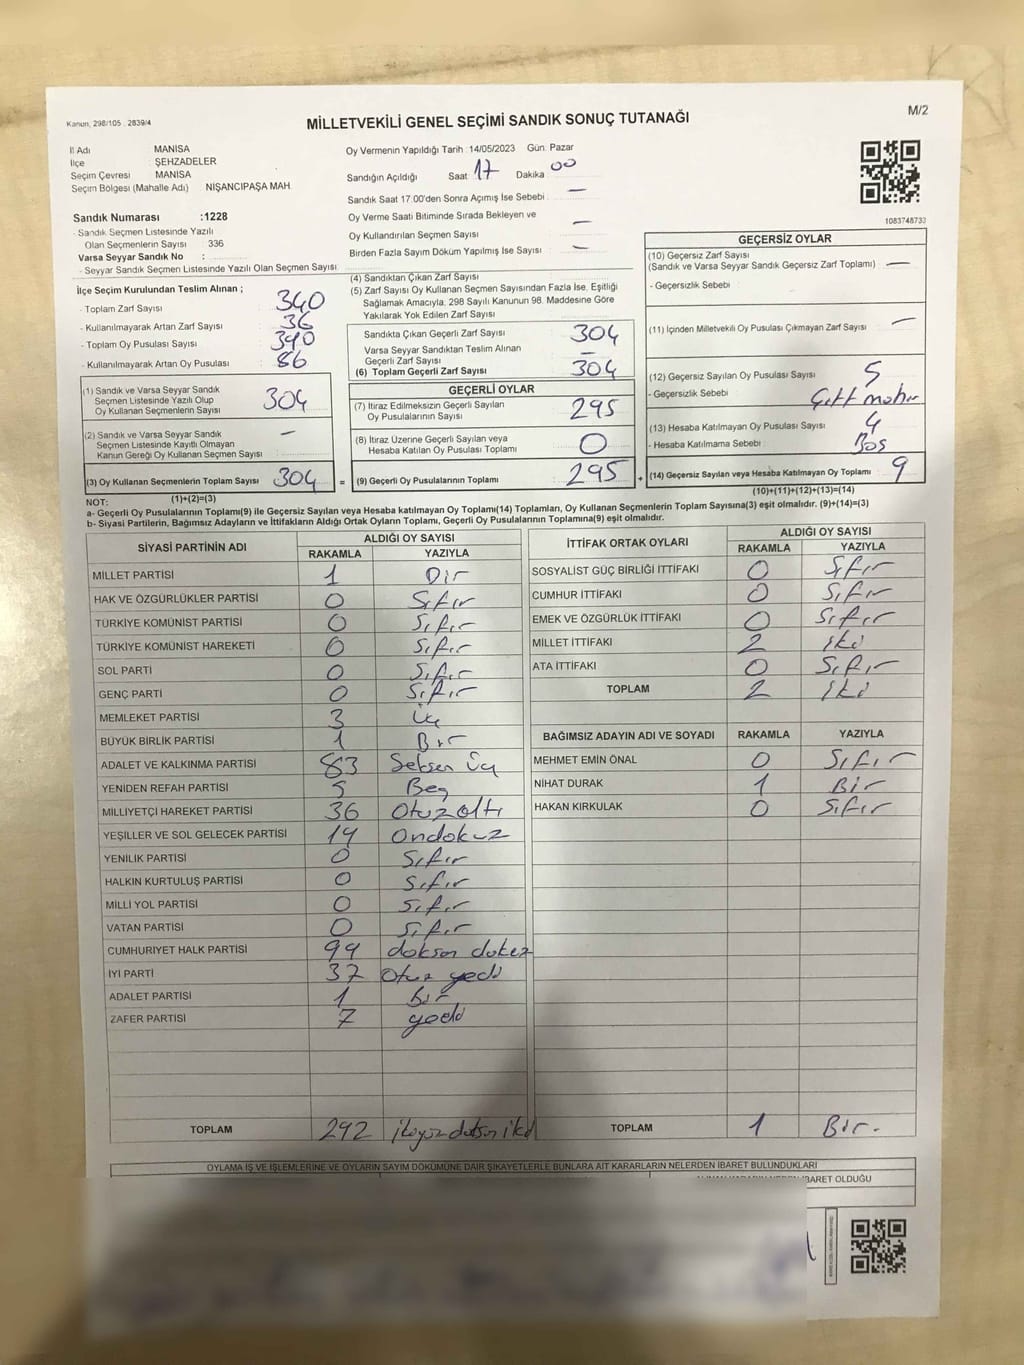 Kanun, 298/105 , 2839/4
M/2
MİLLETVEKİLİ GENEL SEÇİMİ SANDIK SONUÇ TUTANAĞI
İl Adı MANİSA
İlçe : ŞEHZADELER
Seçim Çevresi MANİSA
Seçim Bölgesi (Mahalle Adı) NİŞANCIPAŞA MAH.
Sandık Numarası :1228
- Sandık Seçmen Listesinde Yazılı
Olan Seçmenlerin Sayısı : 336
Varsa Seyyar Sandık No :
- Seyyar Sandık Seçmen Listesinde Yazılı Olan Seçmen Sayısı
Oy Vermenin Yapıldığı Tarih :14/05/2023 Gün: Pazar
Sandığın Açıldığı Saat 17 Dakika 00
Sandık Saat 17.00'den Sonra Açımış İse Sebebi : —
Oy Verme Saati Bitiminde Sırada Bekleyen ve
Oy Kullandırılan Seçmen Sayısı —
Birden Fazla Sayım Döküm Yapılmış İse Sayısı : —
1083748733
İlçe Seçim Kurulundan Teslim Alınan ;
- Toplam Zarf Sayısı : 340
- Kullanılmayarak Artan Zarf Sayısı : 36
- Toplam Oy Pusulası Sayısı : 390
- Kullanılmayarak Artan Oy Pusulası : 86
(1) Sandık ve Varsa Seyyar Sandık
Seçmen Listesinde Yazılı Olup
Oy Kullanan Seçmenlerin Sayısı 304
(2) Sandık ve Varsa Seyyar Sandık
Seçmen Listesinde Kayıtlı Olmayan
Kanun Gereği Oy Kullanan Seçmen Sayısı : —
(3) Oy Kullanan Seçmenlerin Toplam Sayısı 304 =
(1)+(2)=(3)
(4) Sandıktan Çıkan Zarf Sayısı :
(5) Zarf Sayısı Oy Kullanan Seçmen Sayısından Fazla İse, Eşitliği
Sağlamak Amacıyla, 298 Sayılı Kanunun 98. Maddesine Göre
Yakılarak Yok Edilen Zarf Sayısı
Sandıkta Çıkan Geçerli Zarf Sayısı 304
Varsa Seyyar Sandıktan Teslim Alınan
Geçerli Zarf Sayısı —
(6) Toplam Geçerli Zarf Sayısı 304
GEÇERLİ OYLAR
(7) İtiraz Edilmeksizin Geçerli Sayılan
Oy Pusulasının Sayısı 295
(8) İtiraz Üzerine Geçerli Sayılan veya
Hesaba Katılan Oy Pusulası Toplamı 0
(9) Geçerli Oy Pusulalarının Toplamı 295 +
GEÇERSİZ OYLAR
(10) Geçersiz Zarf Sayısı
(Sandık ve Varsa Seyyar Sandık Geçersiz Zarf Toplamı) —
- Geçersizlik Sebebi :
(11) İçinden Milletvekili Oy Pusulası Çıkmayan Zarf Sayısı —
(12) Geçersiz Sayılan Oy Pusulası Sayısı 5
- Geçersizlik Sebebi Çift mühür
(13) Hesaba Katılmayan Oy Pusulası Sayısı : 4
- Hesaba Katılmama Sebebi : Boş
(14) Geçersiz Sayılan veya Hesaba Katılmayan Oy Toplamı 9
(10)+(11)+(12)+(13)=(14)
NOT:
a- Geçerli Oy Pusulalarının Toplamı(9) ile Geçersiz Sayılan veya Hesaba Katılmayan Oy Toplamı(14) Toplamları, Oy Kullanan Seçmenlerin Toplam Sayısına(3) eşit olmalıdır. (9)+(14)=(3)
b- Siyasi Partilerin, Bağımsız Adayların ve İttifakların Aldığı Ortak Oyların Toplamı, Geçerli Oy Pusulalarının Toplamına(9) eşit olmalıdır.
SİYASİ PARTİNİN ADI ALDIĞI OY SAYISI
RAKAMLA YAZIYLA
MİLLET PARTİSİ 1 Bir
HAK VE ÖZGÜRLÜKLER PARTİSİ 0 Sıfır
TÜRKİYE KOMÜNİST PARTİSİ 0 Sıfır
TÜRKİYE KOMÜNİST HAREKETİ 0 Sıfır
SOL PARTİ 0 Sıfır
GENÇ PARTİ 0 Sıfır
MEMLEKET PARTİSİ 3 Üç
BÜYÜK BİRLİK PARTİSİ 1 Bir
ADALET VE KALKINMA PARTİSİ 83 Seksen Üç
YENİDEN REFAH PARTİSİ 5 Beş
MİLLİYETÇİ HAREKET PARTİSİ 36 Otuzaltı
YEŞİLLER VE SOL GELECEK PARTİSİ 19 Ondokuz
YENİLİK PARTİSİ 0 Sıfır
HALKIN KURTULUŞ PARTİSİ 0 Sıfır
MİLLİ YOL PARTİSİ 0 Sıfır
VATAN PARTİSİ 0 Sıfır
CUMHURİYET HALK PARTİSİ 99 doksan dokuz
İYİ PARTİ 37 Otuz yedi
ADALET PARTİSİ 1 Bir
ZAFER PARTİSİ 7 yedi
TOPLAM 292 ikiyüzdoksan iki
İTTİFAK ORTAK OYLARI ALDIĞI OY SAYISI
RAKAMLA YAZIYLA
SOSYALİST GÜÇ BİRLİĞİ İTTİFAKI 0 Sıfır
CUMHUR İTTİFAKI 0 Sıfır
EMEK VE ÖZGÜRLÜK İTTİFAKI 0 Sıfır
MİLLET İTTİFAKI 2 İki
ATA İTTİFAKI 0 Sıfır
TOPLAM 2 İki
BAĞIMSIZ ADAYIN ADI VE SOYADI RAKAMLA YAZIYLA
MEHMET EMİN ÖNAL 0 Sıfır
NİHAT DURAK 1 Bir
HAKAN KIRKULAK 0 Sıfır
TOPLAM 1 Bir.
OYLAMA İŞ VE İŞLEMLERİNE VE OYLARIN SAYIM DÖKÜMÜNE DAİR ŞİKAYETLERLE BUNLARA AİT KARARLARIN NELERDEN İBARET BULUNDUKLARI
İBARET OLDUĞU